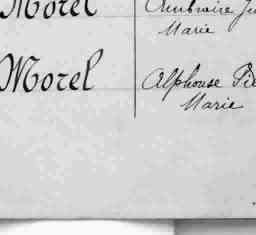 Morel Ambroise
Marie
Morel Alphonse
Marie